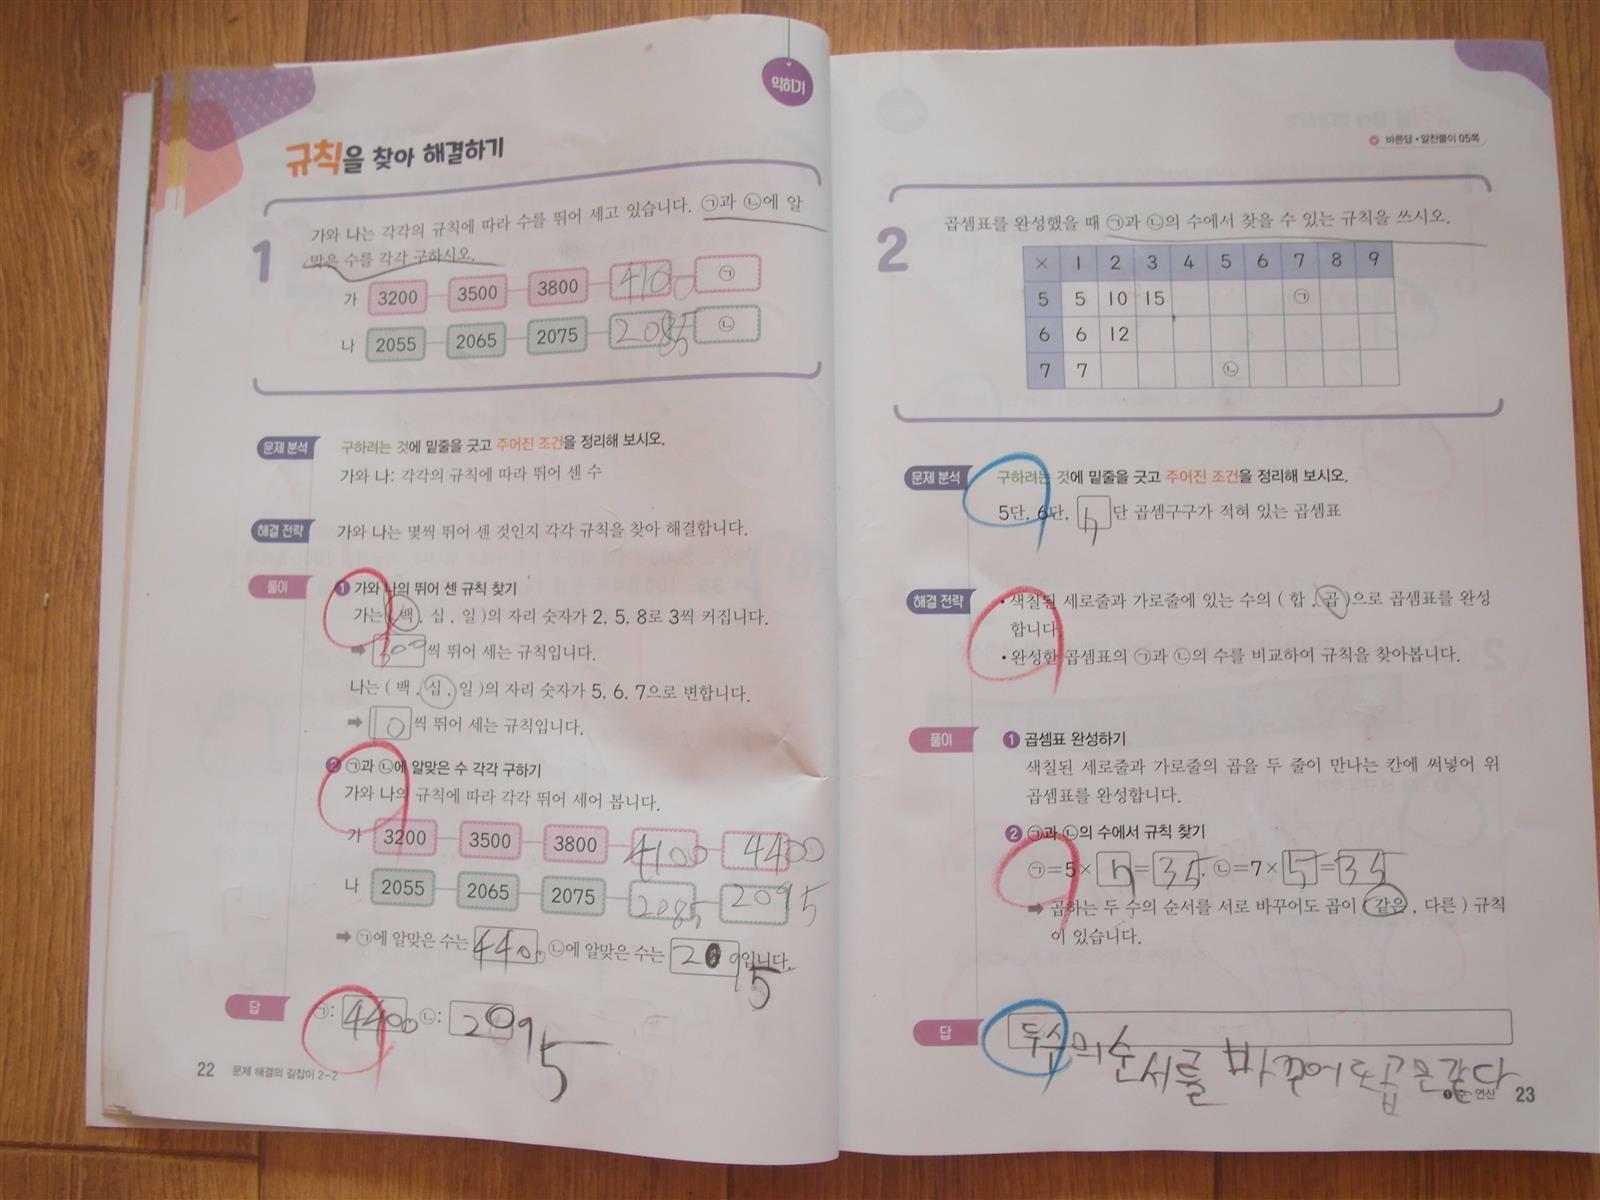 익히기
규칙을 찾아 해결하기
1
가와 나는 각각의 규칙에 따라 수를 뛰어 세고 있습니다. ㉠과 ㉡에 알
맞은 수를 각각 구하시오.
가 3200 3500 3800 4100 ㉠
나 2055 2065 2075 2085 ㉡
문제 분석 구하려는 것에 밑줄을 긋고 주어진 조건을 정리해 보시오.
가와 나: 각각의 규칙에 따라 뛰어 센 수
해결 전략 가와 나는 몇씩 뛰어 센 것인지 각각 규칙을 찾아 해결합니다.
풀이 ❶ 가와 나의 뛰어 센 규칙 찾기
가는 ( 백, 십, 일 )의 자리 숫자가 2, 5, 8로 3씩 커집니다.
➡ 300 씩 뛰어 세는 규칙입니다.
나는 ( 백, 십, 일 )의 자리 숫자가 5, 6, 7으로 변합니다.
➡ 10 씩 뛰어 세는 규칙입니다.
❷ ㉠과 ㉡에 알맞은 수 각각 구하기
가와 나의 규칙에 따라 각각 뛰어 세어 봅니다.
가 3200 3500 3800 4100 4400
나 2055 2065 2075 2085 2095
➡ ㉠에 알맞은 수는 4400, ㉡에 알맞은 수는 2095입니다.
답 ㉠: 4400 ㉡: 2095
22 문제 해결의 길잡이 2-2
바른답 • 알찬풀이 05쪽
2
곱셈표를 완성했을 때 ㉠과 ㉡의 수에서 찾을 수 있는 규칙을 쓰시오.
× 1 2 3 4 5 6 7 8 9
5 5 10 15 ㉠
6 6 12
7 7 ㉡
문제 분석 구하려는 것에 밑줄을 긋고 주어진 조건을 정리해 보시오.
5단, 6단, 7 단 곱셈구구가 적혀 있는 곱셈표
해결 전략 • 색칠된 세로줄과 가로줄에 있는 수의 ( 합, 곱 )으로 곱셈표를 완성
합니다.
• 완성한 곱셈표의 ㉠과 ㉡의 수를 비교하여 규칙을 찾아봅니다.
풀이 ❶ 곱셈표 완성하기
색칠된 세로줄과 가로줄의 곱을 두 줄이 만나는 칸에 써넣어 위
곱셈표를 완성합니다.
❷ ㉠과 ㉡의 수에서 규칙 찾기
㉠=5× 7 = 35, ㉡=7× 5 = 35
➡ 곱하는 두 수의 순서를 서로 바꾸어도 곱이 ( 같은, 다른 ) 규칙
이 있습니다.
답 두 수의 순서를 바꾸어도 곱은 같다
❶ 수·연산 23